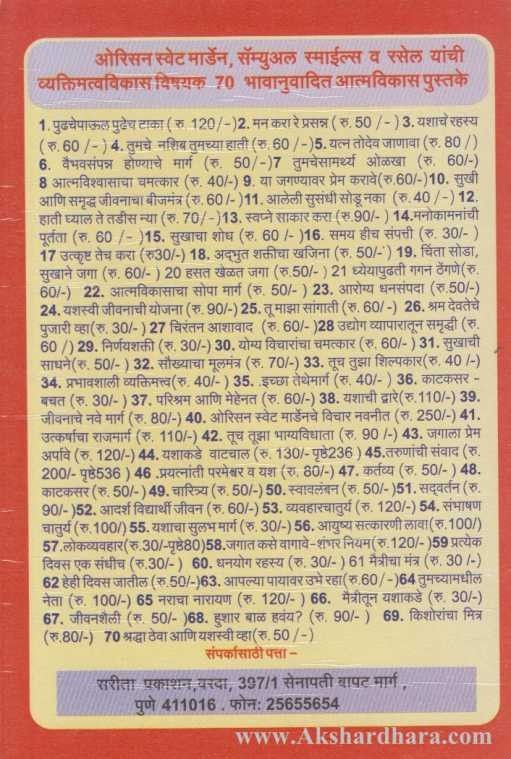 ओरिसन स्वेट मार्डेन, सॅम्युअल स्माईल्स व रसेल यांची
व्यक्तिमत्वविकास विषयक 70 भावानुवादित आत्मविकास पुस्तके
1. पुढचेपाऊल पुढेच टाका ( रु. 120/-)2. मन करा रे प्रसन्न ( रु. 50 /-) 3. यशाचे रहस्य
( रु. 60 /-) 4. तुमचे नशिब तुमच्या हाती ( रु. 60 /-)5. यत्न तोदेव जाणावा ( रु. 80 /)
6. वैभवसंपन्न होण्याचे मार्ग ( रु. 50/-)7 तुमचेसामर्थ्य ओळखा ( रु. 60/-)
8 आत्मविश्वासाचा चमत्कार ( रु. 40/-) 9. या जगण्यावर प्रेम करावे(रु.60/-)10. सुखी
आणि समृद्ध जीवनाचा बीजमंत्र ( रु. 60/-)11. आलेली सुसंधी सोडू नका ( रु. 40 /-) 12.
हाती घ्याल ते तडीस न्या ( रु. 70/-)13. स्वप्ने साकार करा (रु.90/-) 14.मनोकामनांची
पूर्तता ( रु. 60 /-)15. सुखाचा शोध ( रु. 60 /- )16. समय हीच संपत्ती ( रु. 30/- )
17 उत्कृष्ट तेच करा ( रु30/-) 18. अद्भुत शक्तीचा खजिना ( रु. 50/-) 19. चिंता सोडा,
सुखाने जगा ( रु. 60/-) 20 हसत खेळत जगा ( रु. 50/-) 21 ध्येयापुढती गगन ठेंगणे(रु.
60/-) 22. आत्मविकासाचा सोपा मार्ग ( रु. 50/- ) 23. आरोग्य धनसंपदा ( रु. 50/-)
24. यशस्वी जीवनाची योजना ( रु. 90/-) 25. तू माझा सांगाती ( रु. 60/-) 26. श्रम देवतेचे
पुजारी व्हा(रु. 30/- ) 27 चिरंतन आशावाद ( रु. 60/-)28 उद्योग व्यापारातून समृद्धी ( रु.
60 /) 29. निर्णयशक्ती ( रु. 30/-) 30. योग्य विचारांचा चमत्कार ( रु. 60/-) 31. सुखाची
साधने(रु. 50/-) 32. सौख्याचा मूलमंत्र ( रु. 70/-) 33. तूच तुझा शिल्पकार( रु. 40 /-)
34. प्रभावशाली व्यक्तिमत्त्व( रु. 40/-) 35. .इच्छा तेथेमार्ग ( रु. 40/- ) 36. काटकसर -
बचत ( रु. 30/-) 37. परिश्रम आणि मेहेनत ( रु. 60/-) 38. यशाची द्वारे(रु.110/-) 39.
जीवनाचे नवे मार्ग ( रु. 80/-) 40. ओरिसन स्वेट मार्डेनचे विचार नवनीत ( रु. 250/-) 41.
उत्कर्षाचा राजमार्ग ( रु. 110/-) 42. तूच तूझा भाग्यविधाता ( रु. 90 /-) 43. जगाला प्रेम
अर्पावे ( रु. 120/-)44. यशाकडे वाटचाल ( रु. 130/- पृष्ठे236 ) 45.तरुणांची संवाद ( रु.
200/- पृष्ठे536) 46 .प्रयत्नांती परमेश्वर व यश ( रु. 80/-) 47. कर्तव्य ( रु. 50/-) 48.
काटकसर ( रु. 50/-) 49. चारित्र्य ( रु. 50/-) 50. स्वावलंबन ( रु. 50/-)51. सद्वर्तन ( रु.
90/-)52. आदर्श विद्यार्थी जीवन ( रु. 60/-) 53. व्यवहारचातुर्य ( रु. 120/-) 54. संभाषण
चातुर्य (रु.100/) 55. यशाचा सुलभ मार्ग ( रु. 30/-) 56. आयुष्य सत्कारणी लावा(रु.100/)
57.लोकव्यवहार(रु.30/-पृष्ठे80)58.जगात कसे वागावे-शंभर नियम(रु.120/-)59 प्रत्येक
दिवस एक संधीच (रु.30/-) 60. धनयोग रहस्य ( रु. 30/-) 61 मैत्रीचा मंत्र ( रु. 30 /-)
62 हेही दिवस जातील (रु.50/-)63. आपल्या पायावर उभे रहा( रु.60/-)64 तुमच्यामधील
नेता ( रु. 100/-) 65 नराचा नारायण ( रु. 120/-) 66. मैत्रीतून यशाकडे ( रु. 30/-)
67. जीवनशैली ( रु. 50/- )68. हुशार बाळ हवंय? ( रु. 90/- ) 69. किशोरांचा मित्र
(रु.80/-) 70 श्रद्धा ठेवा आणि यशस्वी व्हा(रु. 50 /-)
संपर्कासाठी पत्ता –
सरीता प्रकाशन,वरदा, 397/1 सेनापती बापट मार्ग ,
पुणे 411016 . फोन: 25655654
www.Akshardhara.com